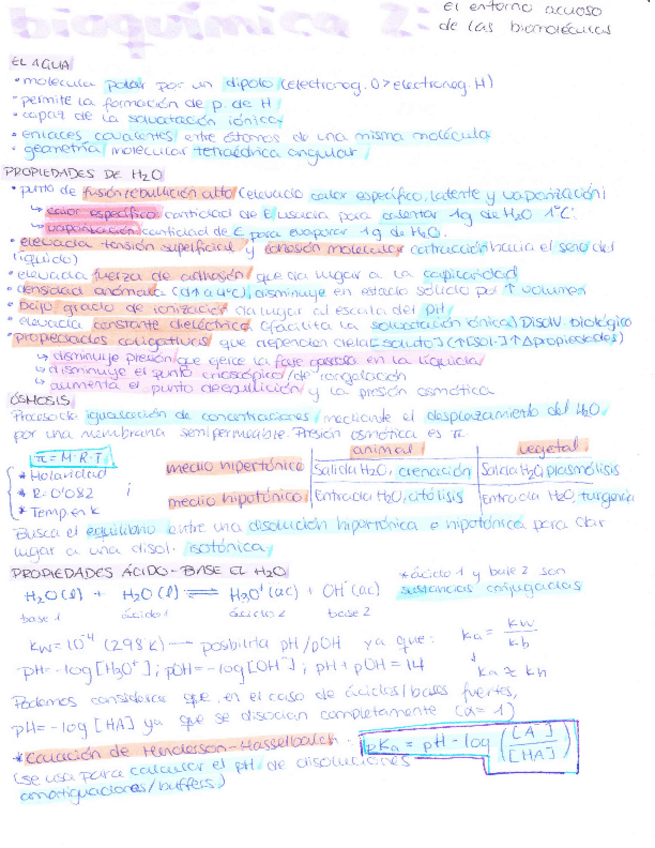 bioquímica 2: el entorno acuoso
de las biomoléculas
EL AGUA
• molécula polar por un dipolo (electroneg. O > electroneg. H)
• permite la formación de p. de H
• capaz de la solvatación iónica
• enlaces covalentes entre átomos de una misma molécula
• geometría molecular tetraédrica angular
PROPIEDADES DE H₂O
• punto de fusión/ebullición alto (elevado calor específico, latente y vaporización)
↳ calor específico: cantidad de E usada para calentar 1g de H₂O 1°C.
↳ vaporización: cantidad de E para evaporar 1g de H₂O.
• elevada tensión superficial y cohesión molecular (atracción hacia el seno del
líquido)
• elevada fuerza de adhesión que da lugar a la capilaridad
• densidad anómala (d↑ a 4°C), disminuye en estado sólido por ↑ volumen
• bajo grado de ionización da lugar al escala del pH
• elevada constante dieléctrica (facilita la solvatación iónica) Disolv. biológico
• propiedades coligativas que dependen de la [soluto] (↑[sol.] ↑Δpropiedades)
↳ disminuye presión que ejerce la fase gaseosa en la líquida
↳ disminuye el punto crioscópico/de congelación
↳ aumenta el punto de ebullición y la presión osmótica
ÓSMOSIS
Proceso de igualación de concentraciones mediante el desplazamiento del H₂O
por una membrana semipermeable. Presión osmótica es π.
π = M·R·T animal vegetal
* Molaridad medio hipertónico Salida H₂O, crenación Salida H₂O, plasmólisis
* R: 0'082 medio hipotónico Entrada H₂O, citólisis Entrada H₂O, turgencia
* Temp en k
Busca el equilibrio entre una disolución hipertónica e hipotónica para dar
lugar a una disol. isotónica
PROPIEDADES ÁCIDO-BASE EL H₂O * ácido 1 y base 2 son
H₂O(l) + H₂O(l) ⇌ H₃O⁺(ac) + OH⁻(ac) sustancias conjugadas
base 1 ácido 1 ácido 2 base 2
Kw = 10⁻⁴ (298 k) — posibilita pH/pOH ya que: ka = kw/kb
-pH = -log [H₃O⁺]; pOH = -log [OH⁻]; pH + pOH = 14 ↓ ka ≈ kh
Podemos considerar que, en el caso de ácidos/bases fuertes,
pH = -log [HA] ya que se disocian completamente (α = 1)
* Ecuación de Henderson-Hasselbalch · pKa = pH - log ([A⁻]/[HA])
(se usa para calcular el pH de disoluciones
amortiguaciones/buffers)